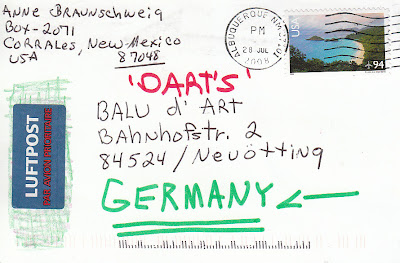 Anne Braunschweig
Box-2071
Corrales, New Mexico
87048
USA
ALBUQUERQUE NM
PM
28 JUL
2008
USA
94
"DART'S"
BALU d' ART
BAhnhofstr. 2
84524/Neuötting
GERMANY
LUFTPOST
PAR AVION PRIORITAIRE